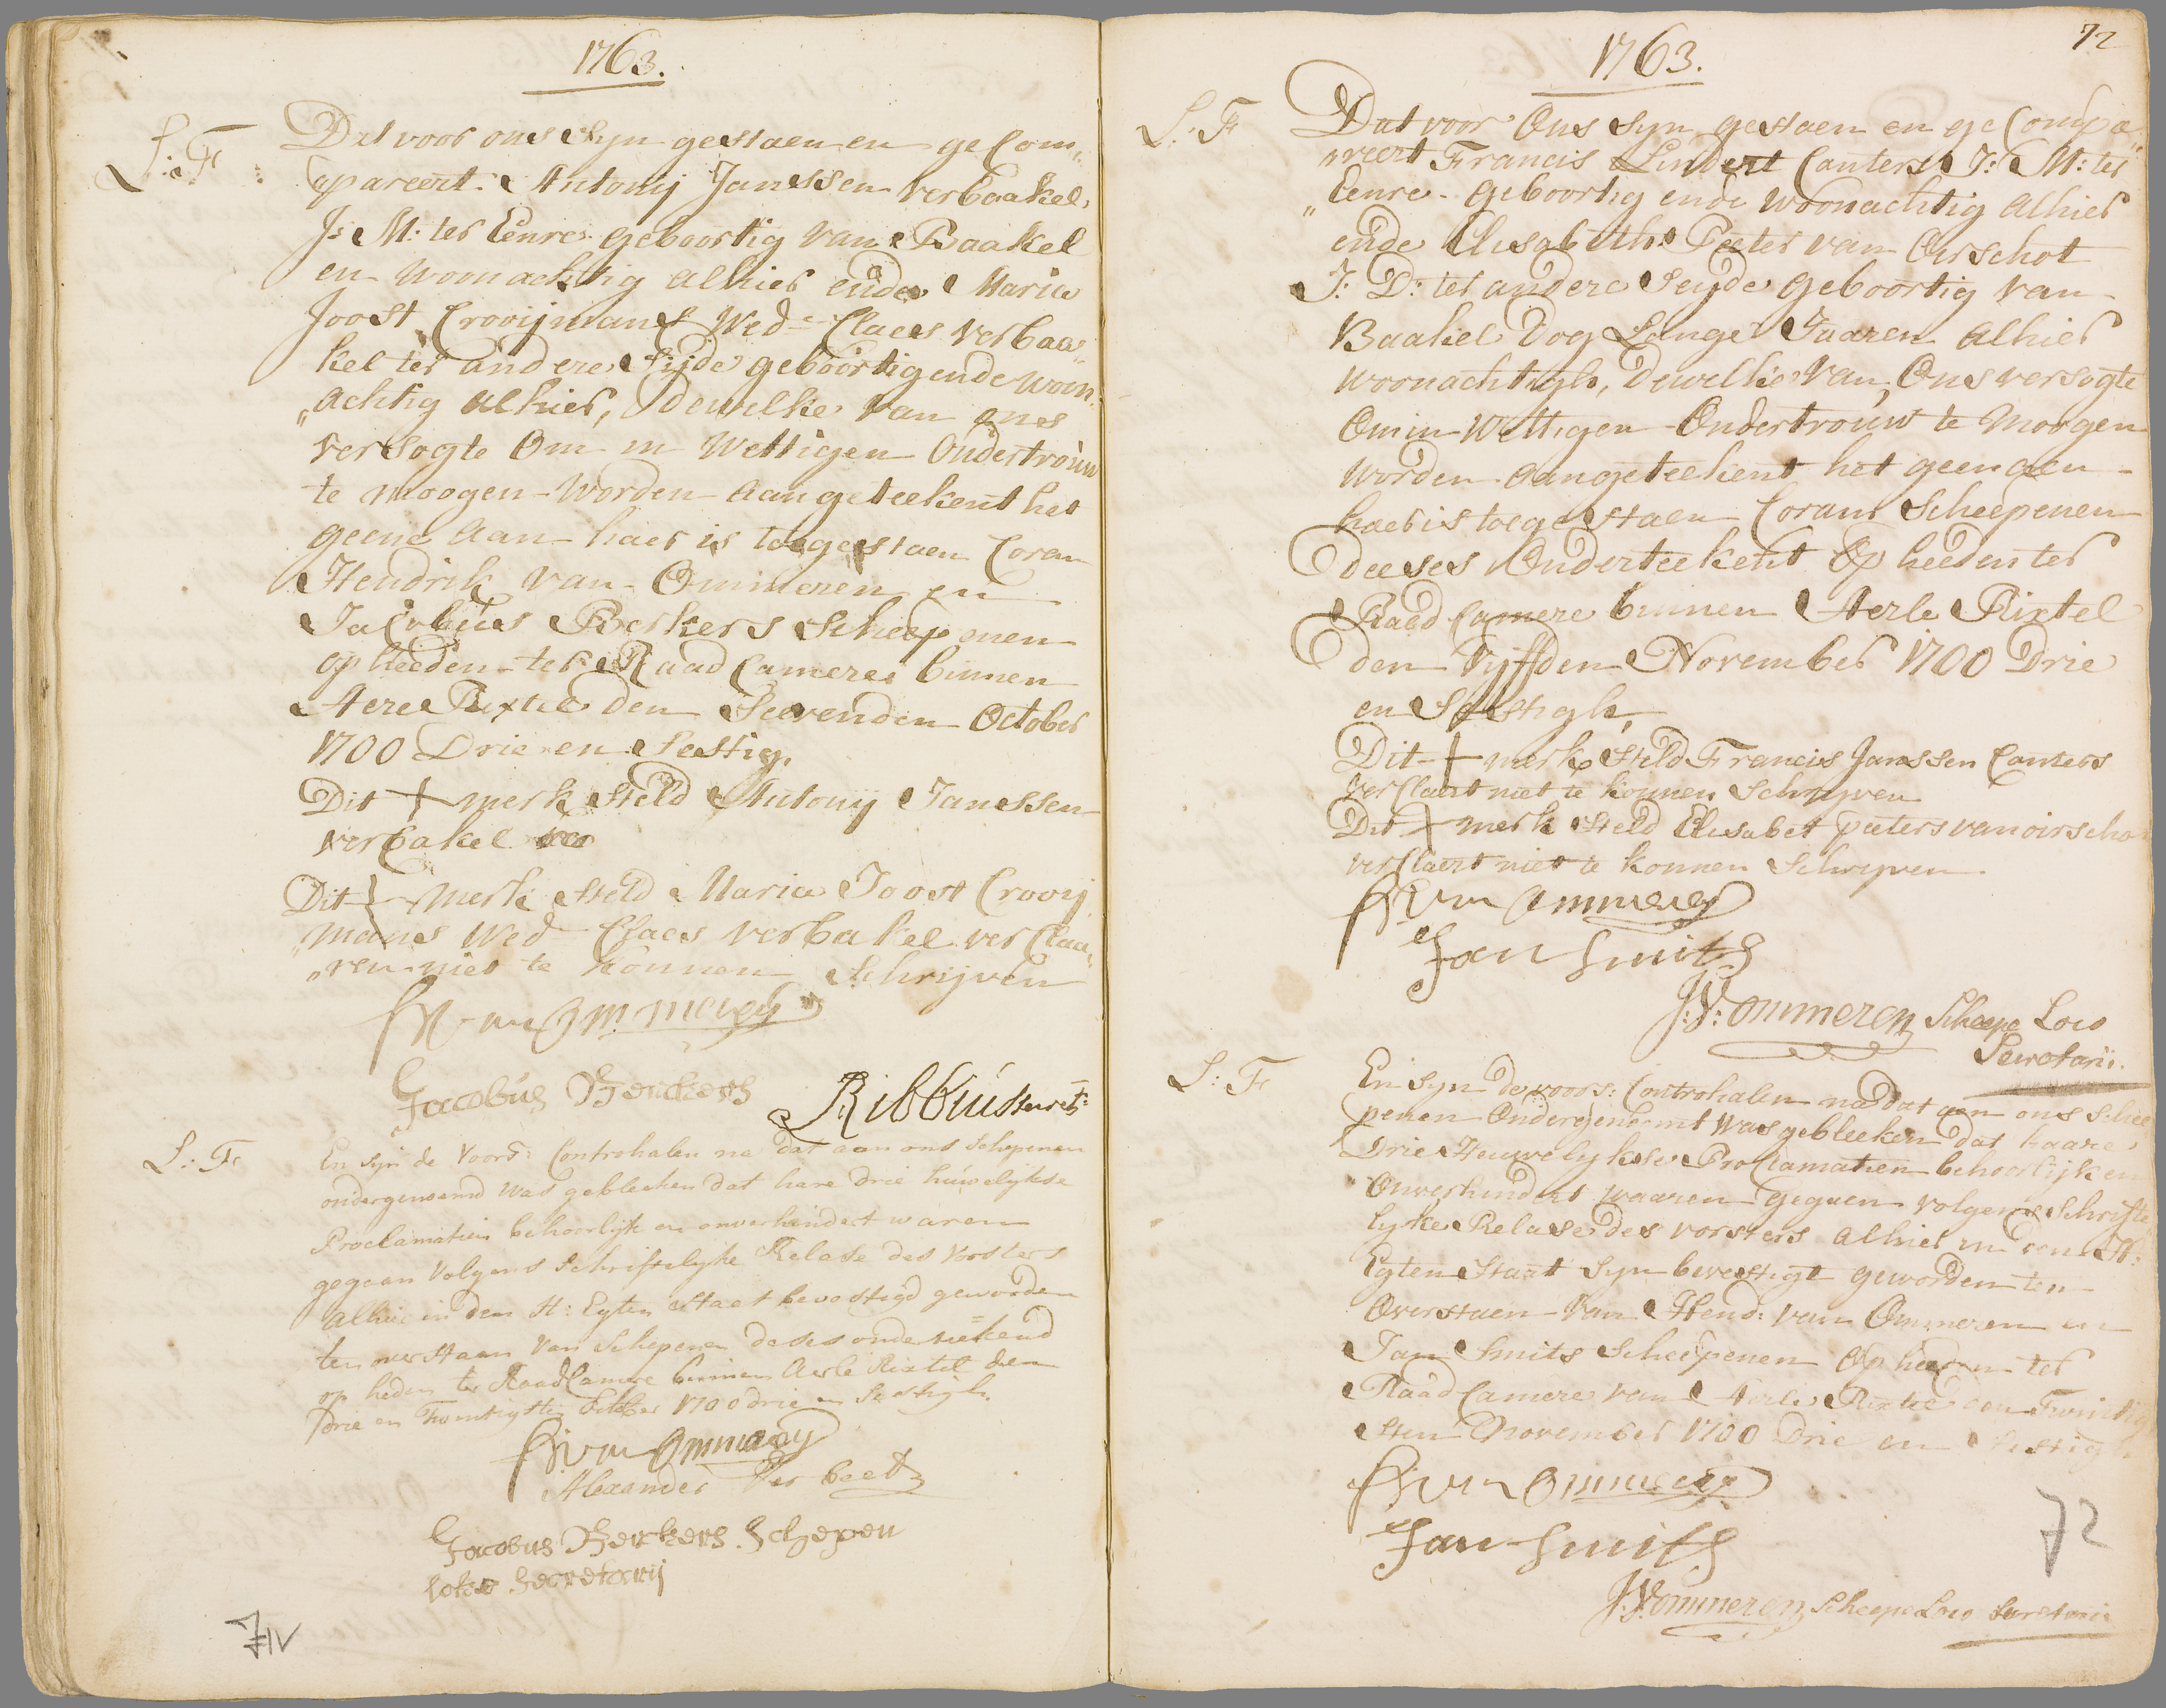 1763.
L: F
Dat voor ons Syn gestaen en ge Com„
„pareert. Antonij Janssen verbaakel,
J: M: ter Eenre geboortig van Baakel
en woonachtig alhier ende Maria
Joost Crooijmans Wed=e Claes verbaa„
kel ter andere Sijde geboortig ende woon„
„achtig alhier, dewelke van ons
versogte Om in Wettigen Ondertrouw
te moogen Worden aangeteekent het
geene aan haer is toegestaen Coram
Hendrik van Ommeren en
Jacobus Berkers Scheepenen
op heeden ter Raad Camere binnen
Aerle Rixtel den Seevenden October
1700 Drie en Sestig.
Dit + merk Steld Antonij Janssen
verbakel
Dit + Merk Steld Maria Joost Crooij
„mans Wed Claes verbakel ver Claa„
„ren niet te konnen Schrijven
H van Ommeren
Jacobus Berckers
Ribbius Secrets:
L: F
En Syn de Voors: Controhalen na dat aan ons Schepenen
ondergenoemd Was gebleeken dat hare drie huwelijkse
Proclamatien behoorlijk en onverhindert waren
gegaan Volgens Schriftelijke Relase des Vorsters
Alhier in den H: Egten Staet bevestigd geworden
ten overstaan Van Schepenen deses onderteekend
op heden ter Raad Camere binnen Aerle Rixtel den
drie en Twintigsten October 1700 drie en Sestigh.
H van Ommeren
Alexander Ver beek
Jacobus Berckers Schepen
loko Secretarij
71v
72
1763.
L: F
Dat voor Ons Syn gestaen en ge Compa„
„reert Francis Lindert Canters J: M: ter
„Eenre geboortig ende woonachtig alhier
ende Elisabeth Peeter van Oirschot
J: D: ter andere Seyde geboortig van
Baakel Dog Lange Jaaren alhier
woonachtigh, Dewelke van Ons versogte
Om in Wettigen Ondertrouw te Moogen
worden aangeteekent het geen aen
haer is toegestaen Coram Scheepenen
deeses Onderteekent Op heeden ter
Raed Camere binnen Aerle Rixtel
den Vyffden November 1700 Drie
en Sestigh,
Dit + merk Steld Francis Janssen Canters
ver Claert niet te konnen Schryven
Dit + merk Steld Elisabet peeters van oirscho
ver Claert niet te konnen Schryven
H van Ommeren
Jan Smits
J: V: Ommeren Scheepe Loco
Secretarii.
L: F
En Syn de voors: Controhalen na dat aen ons Schee
penen Ondergenoemt Was gebleeken dat haare
Drie Heuwelykse Proclamatien behoorlijk en
Onverhindert waaren gegaen volgens Schrifte
lyke Relase des vorsters alhier in den H:
Egten Staat Syn bevestigt geworden ten
Overstaen van Hend: van Ommeren en
Jan Smits Scheepenen Op heeden ter
Raad Camere van Aerle Rixtel den Twintig
sten November 1700 Drie en Sestigh
H van Ommeren
Jan Smits
J: V: Ommeren Scheepe Loco Secretarii
72